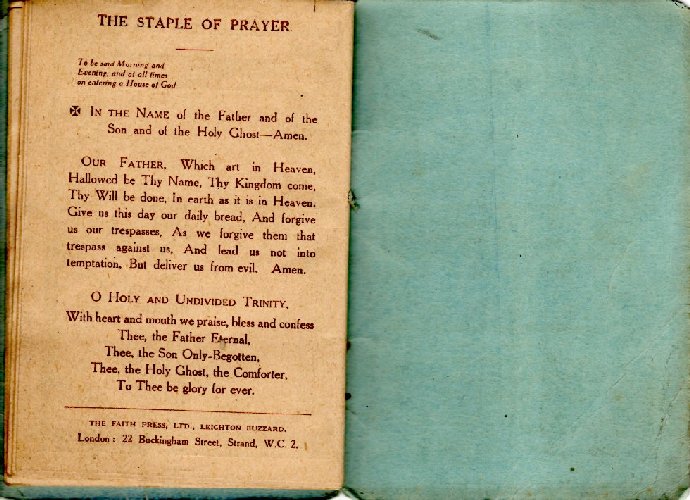 THE STAPLE OF PRAYER
To be said Morning and
Evening, and at all times
on entering a House of God
✠ IN THE NAME of the Father and of the
Son and of the Holy Ghost—Amen.
OUR FATHER, Which art in Heaven,
Hallowed be Thy Name, Thy Kingdom come,
Thy Will be done, In earth as it is in Heaven.
Give us this day our daily bread, And forgive
us our trespasses, As we forgive them that
trespass against us, And lead us not into
temptation, But deliver us from evil. Amen.
O HOLY AND UNDIVIDED TRINITY,
With heart and mouth we praise, bless and confess
Thee, the Father Eternal,
Thee, the Son Only-Begotten,
Thee, the Holy Ghost, the Comforter,
To Thee be glory for ever.
THE FAITH PRESS, LTD., LEIGHTON BUZZARD.
London: 22 Buckingham Street, Strand, W.C. 2.